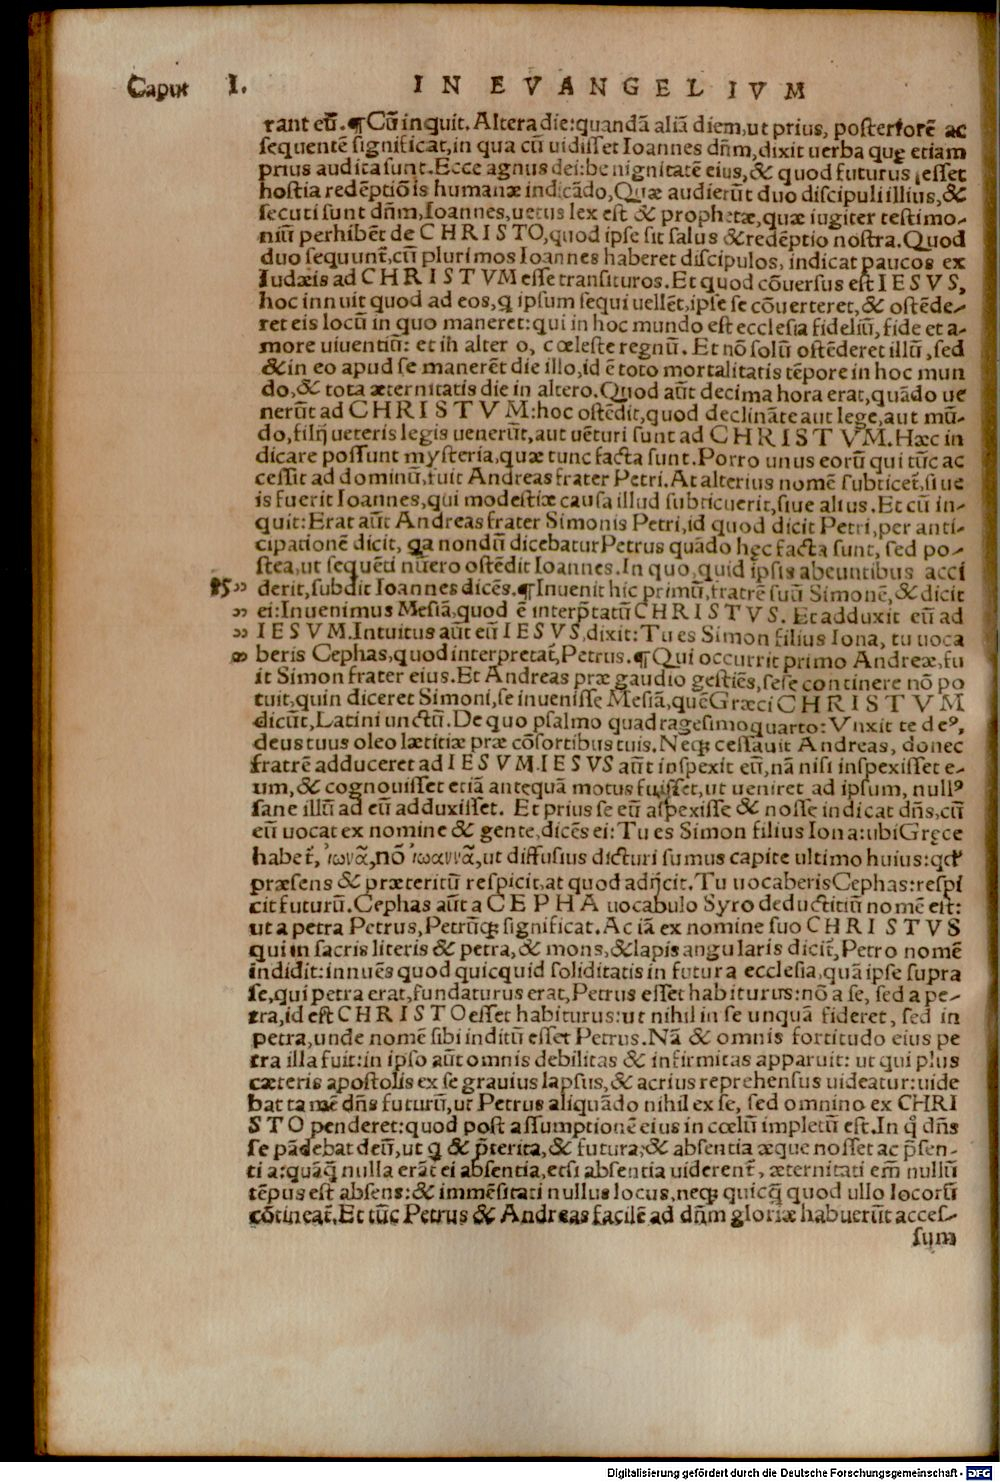 Caput I. IN EVANGELIVM
rant eũ. ¶Cũ inquit. Altera die: quandã aliã diem, ut prius, posteriorẽ ac
sequentẽ significat, in qua cũ uidisset Ioannes dñm, dixit uerba quę etiam
prius audita sunt. Ecce agnus dei: benignitatẽ eius, & quod futurus esset
hostia redẽptiõis humanæ indicãdo, Quæ audierũt duo discipuli illius, &
secuti sunt dñm, Ioannes, uetus lex est & prophetæ, quæ iugiter testimo-
niũ perhibẽt de CHRISTO, quod ipse sit salus & redẽptio nostra. Quod
duo sequunt̃, cũ plurimos Ioannes haberet discipulos, indicat paucos ex
Iudæis ad CHRISTVM esse transituros. Et quod cõuersus est IESVS,
hoc innuit quod ad eos, q ipsum sequi uellẽt, ipse se cõuerteret, & ostẽde-
ret eis locũ in quo maneret: qui in hoc mundo est ecclesia fideliũ, fide et a-
more uiuentiũ: et in altero, cœleste regnũ. Et nõ solũ ostẽderet illũ, sed
& in eo apud se manerẽt die illo, id ẽ toto mortalitatis tẽpore in hoc mun
do, & tota æternitatis die in altero. Quod aũt decima hora erat, quãdo ue
nerũt ad CHRISTVM: hoc ostẽdit, quod declinãte aut lege, aut mũ-
do, filij ueteris legis uenerũt, aut uẽturi sunt ad CHRISTVM. Hæc in
dicare possunt mysteria, quæ tunc facta sunt. Porro unus eorũ qui tũc ac
cessit ad dominũ, fuit Andreas frater Petri. At alterius nomẽ subticet̃, siue
is fuerit Ioannes, qui modestiæ causa illud subticuerit, siue alius. Et cũ in-
quit: Erat aũt Andreas frater Simonis Petri, id quod dicit Petri, per anti-
cipationẽ dicit, qa nondũ dicebatur Petrus quãdo hęc facta sunt, sed po-
stea, ut sequẽti nũero ostẽdit Ioannes. In quo, quid ipsis abeuntibus acci
15 „ derit, subdit Ioannes dicẽs. ¶Inuenit hic primũ, fratrẽ suũ Simonẽ, & dicit
„ ei: Inuenimus Mesiã, quod ẽ interp̃tatũ CHRISTVS. Et adduxit eũ ad
„ IESVM. Intuitus aũt eũ IESVS, dixit: Tu es Simon filius Iona, tu uoca
„ beris Cephas, quod interpretat̃, Petrus. ¶Qui occurrit primo Andreæ, fu
it Simon frater eius. Et Andreas præ gaudio gestiẽs, sese continere nõ po
tuit, quin diceret Simoni, se inuenisse Mesiã, quẽ Græci CHRISTVM
dicũt, Latini unctũ. De quo psalmo quadragesimoquarto: Vnxit te deꝰ,
deus tuus oleo lætitiæ præ cõsortibus tuis. Neqꝫ cessauit Andreas, donec
fratrẽ adduceret ad IESVM. IESVS aũt inspexit eũ, nã nisi inspexisset e-
um, & cognouisset etiã antequã motus fuisset, ut ueniret ad ipsum, nullꝰ
sane illũ ad eũ adduxisset. Et prius se eũ aspexisse & nosse indicat dñs, cũ
eũ uocat ex nomine & gente, dicẽs ei: Tu es Simon filius Iona: ubi Gręce
habet̃, ἰωνᾶ, nõ ἰωαννᾶ, ut diffusius dicturi sumus capite ultimo huius: qđ
præsens & præteritũ respicit, at quod adijcit. Tu uocaberis Cephas: respi
cit futurũ. Cephas aũt a CEPHA uocabulo Syro deductitiũ nomẽ est:
ut a petra Petrus, Petrũqꝫ significat. Ac iã ex nomine suo CHRISTVS
qui in sacris literis & petra, & mons, & lapis angularis dicit̃, Petro nomẽ
indidit: innuẽs quod quicquid soliditatis in futura ecclesia, quã ipse supra
se, qui petra erat, fundaturus erat, Petrus esset habiturus: nõ a se, sed a pe-
tra, id est CHRISTO esset habiturus: ut nihil in se unquã fideret, sed in
petra, unde nomẽ sibi inditũ esset Petrus. Nã & omnis fortitudo eius pe
tra illa fuit: in ipso aũt omnis debilitas & infirmitas apparuit: ut qui plus
cæteris apostolis ex se grauius lapsus, & acrius reprehensus uideatur: uide
bat tamẽ dñs futurũ, ut Petrus aliquãdo nihil ex se, sed omnino ex CHRI
STO penderet: quod post assumptionẽ eius in cœlũ impletũ est. In q̊ dñs
se pãdebat deũ, ut q & p̃terita, & futura, & absentia æque nosset ac p̃sen-
tia: quãq̃ nulla erãt ei absentia, etsi absentia uiderent̃, æternitati em̃ nullũ
tẽpus est absens: & immẽsitati nullus locus, neqꝫ quicq̃ quod ullo locorũ
cõtineat̃. Et tũc Petrus & Andreas facilẽ ad dñm gloriæ habuerũt acces-
sum
Digitalisierung gefördert durch die Deutsche Forschungsgemeinschaft - DFG